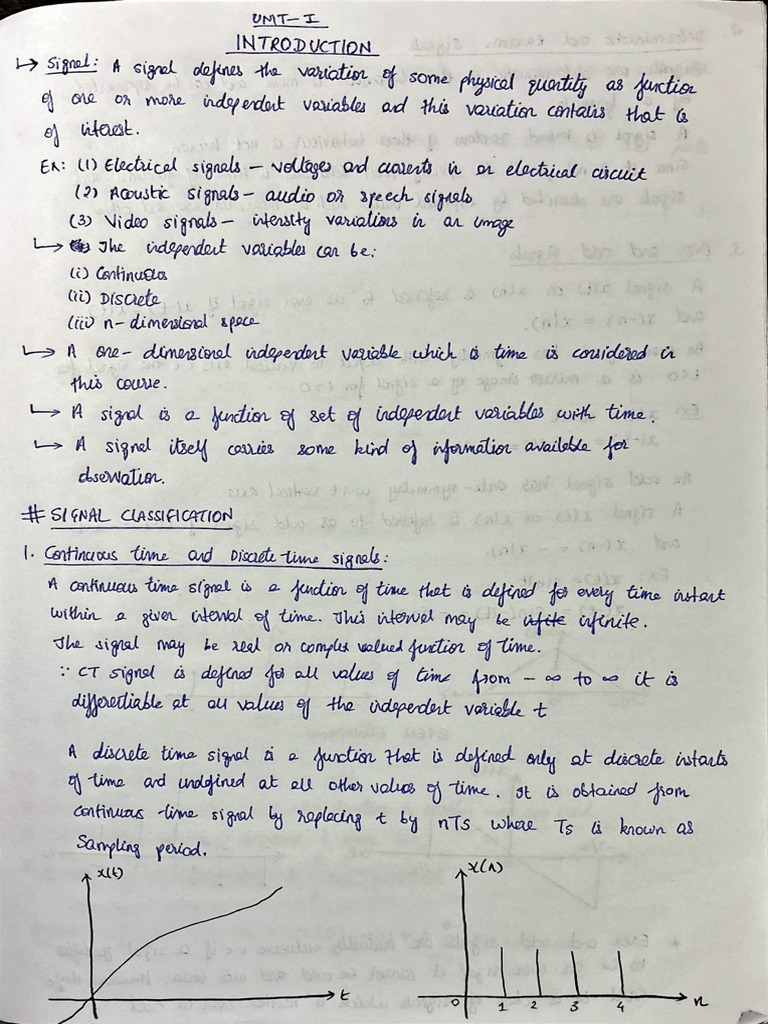 UNIT-I
INTRODUCTION
↳ Signal: A signal defines the variation of some physical quantity as function
of one or more independent variables and this variation contains that is
of interest.
Ex: (1) Electrical signals – voltages and currents in an electrical circuit
(2) Acoustic signals – audio or speech signals
(3) Video signals – intensity variations in an image
↳ The independent variables can be:
(i) Continuous
(ii) Discrete
(iii) n-dimensional space
↳ A one-dimensional independent variable which is time is considered in
this course.
↳ A signal is a function of set of independent variables with time.
↳ A signal itself carries some kind of information available for
observation.
# SIGNAL CLASSIFICATION
1. Continuous time and Discrete time signals:
A continuous time signal is a function of time that is defined for every time instant
within a given interval of time. This interval may be infinite.
The signal may be real or complex valued function of time.
∵ CT signal is defined for all values of time from -∞ to ∞ it is
differentiable at all values of the independent variable t
A discrete time signal is a function that is defined only at discrete instants
of time and undefined at all other values of time. It is obtained from
continuous-time signal by replacing t by nTs where Ts is known as
Sampling period.
x(t)
t
x(n)
0 1 2 3 4 n